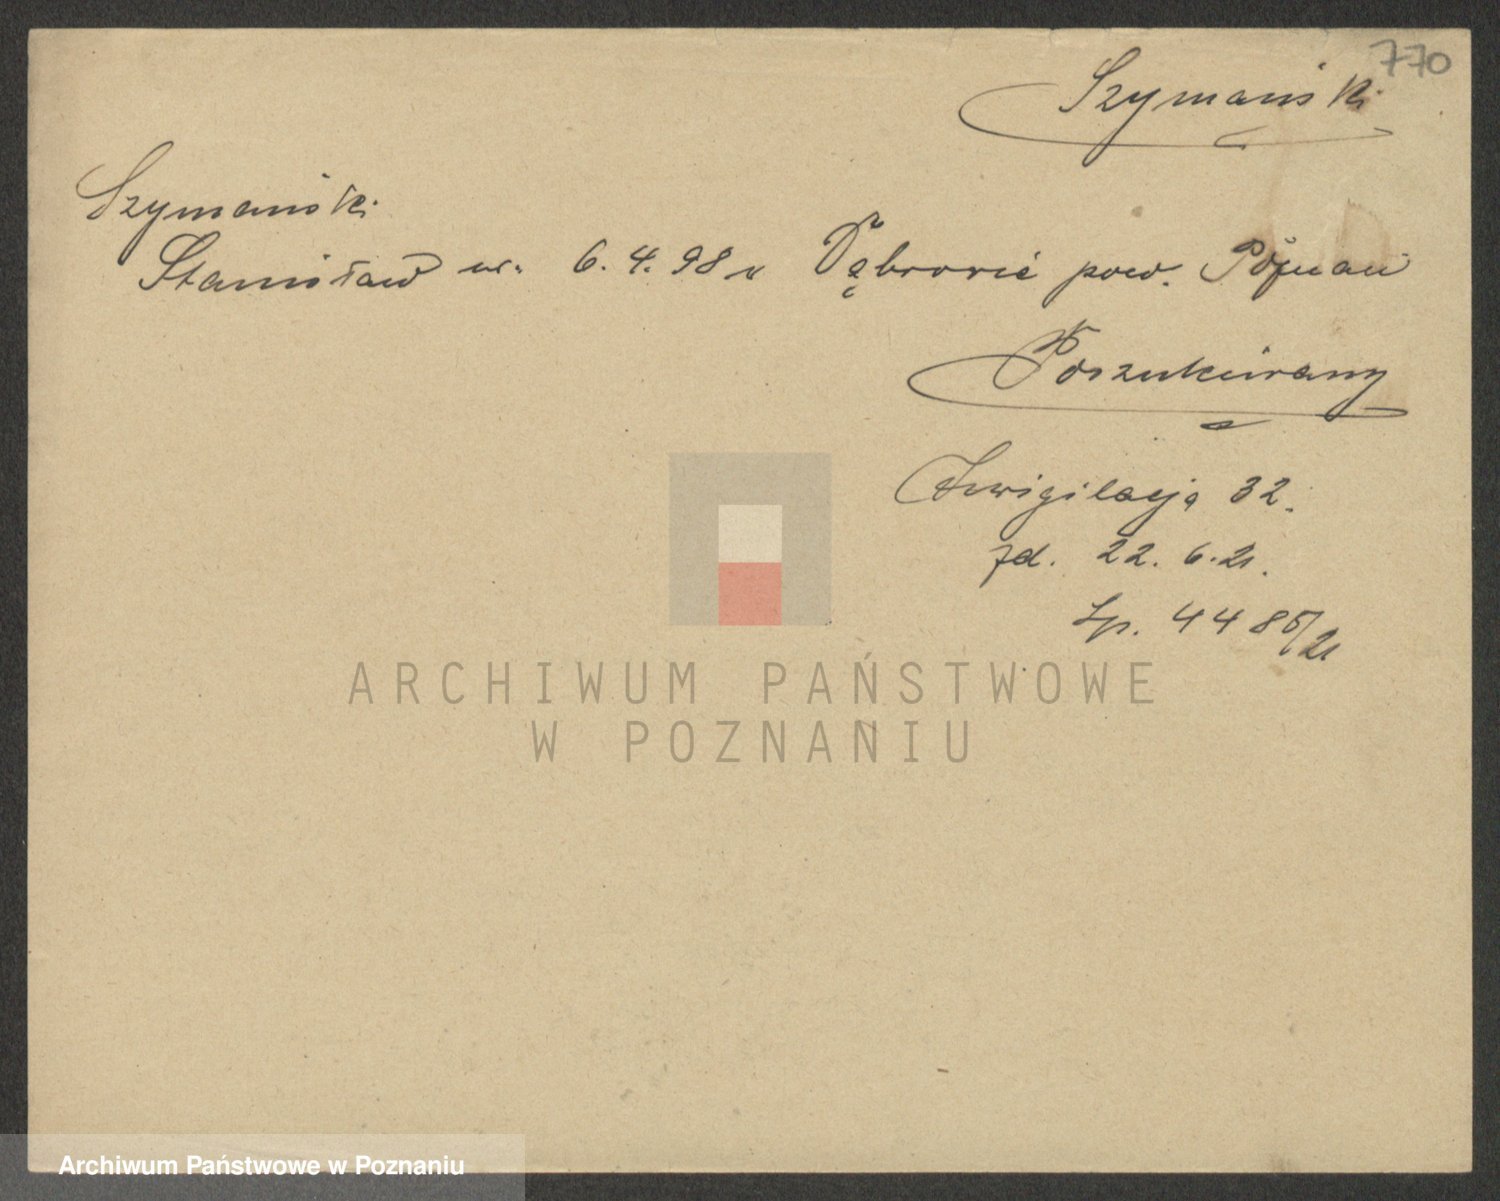 770
Szymański
Szymański
Stanisław ur. 6.4.98 w Dąbrowie pow. Poznań
Poszukiwany
Inwigilacja 32.
zd. 22. 6. 21.
Lp. 4485/21
ARCHIWUM PAŃSTWOWE
W POZNANIU
Archiwum Państwowe w Poznaniu